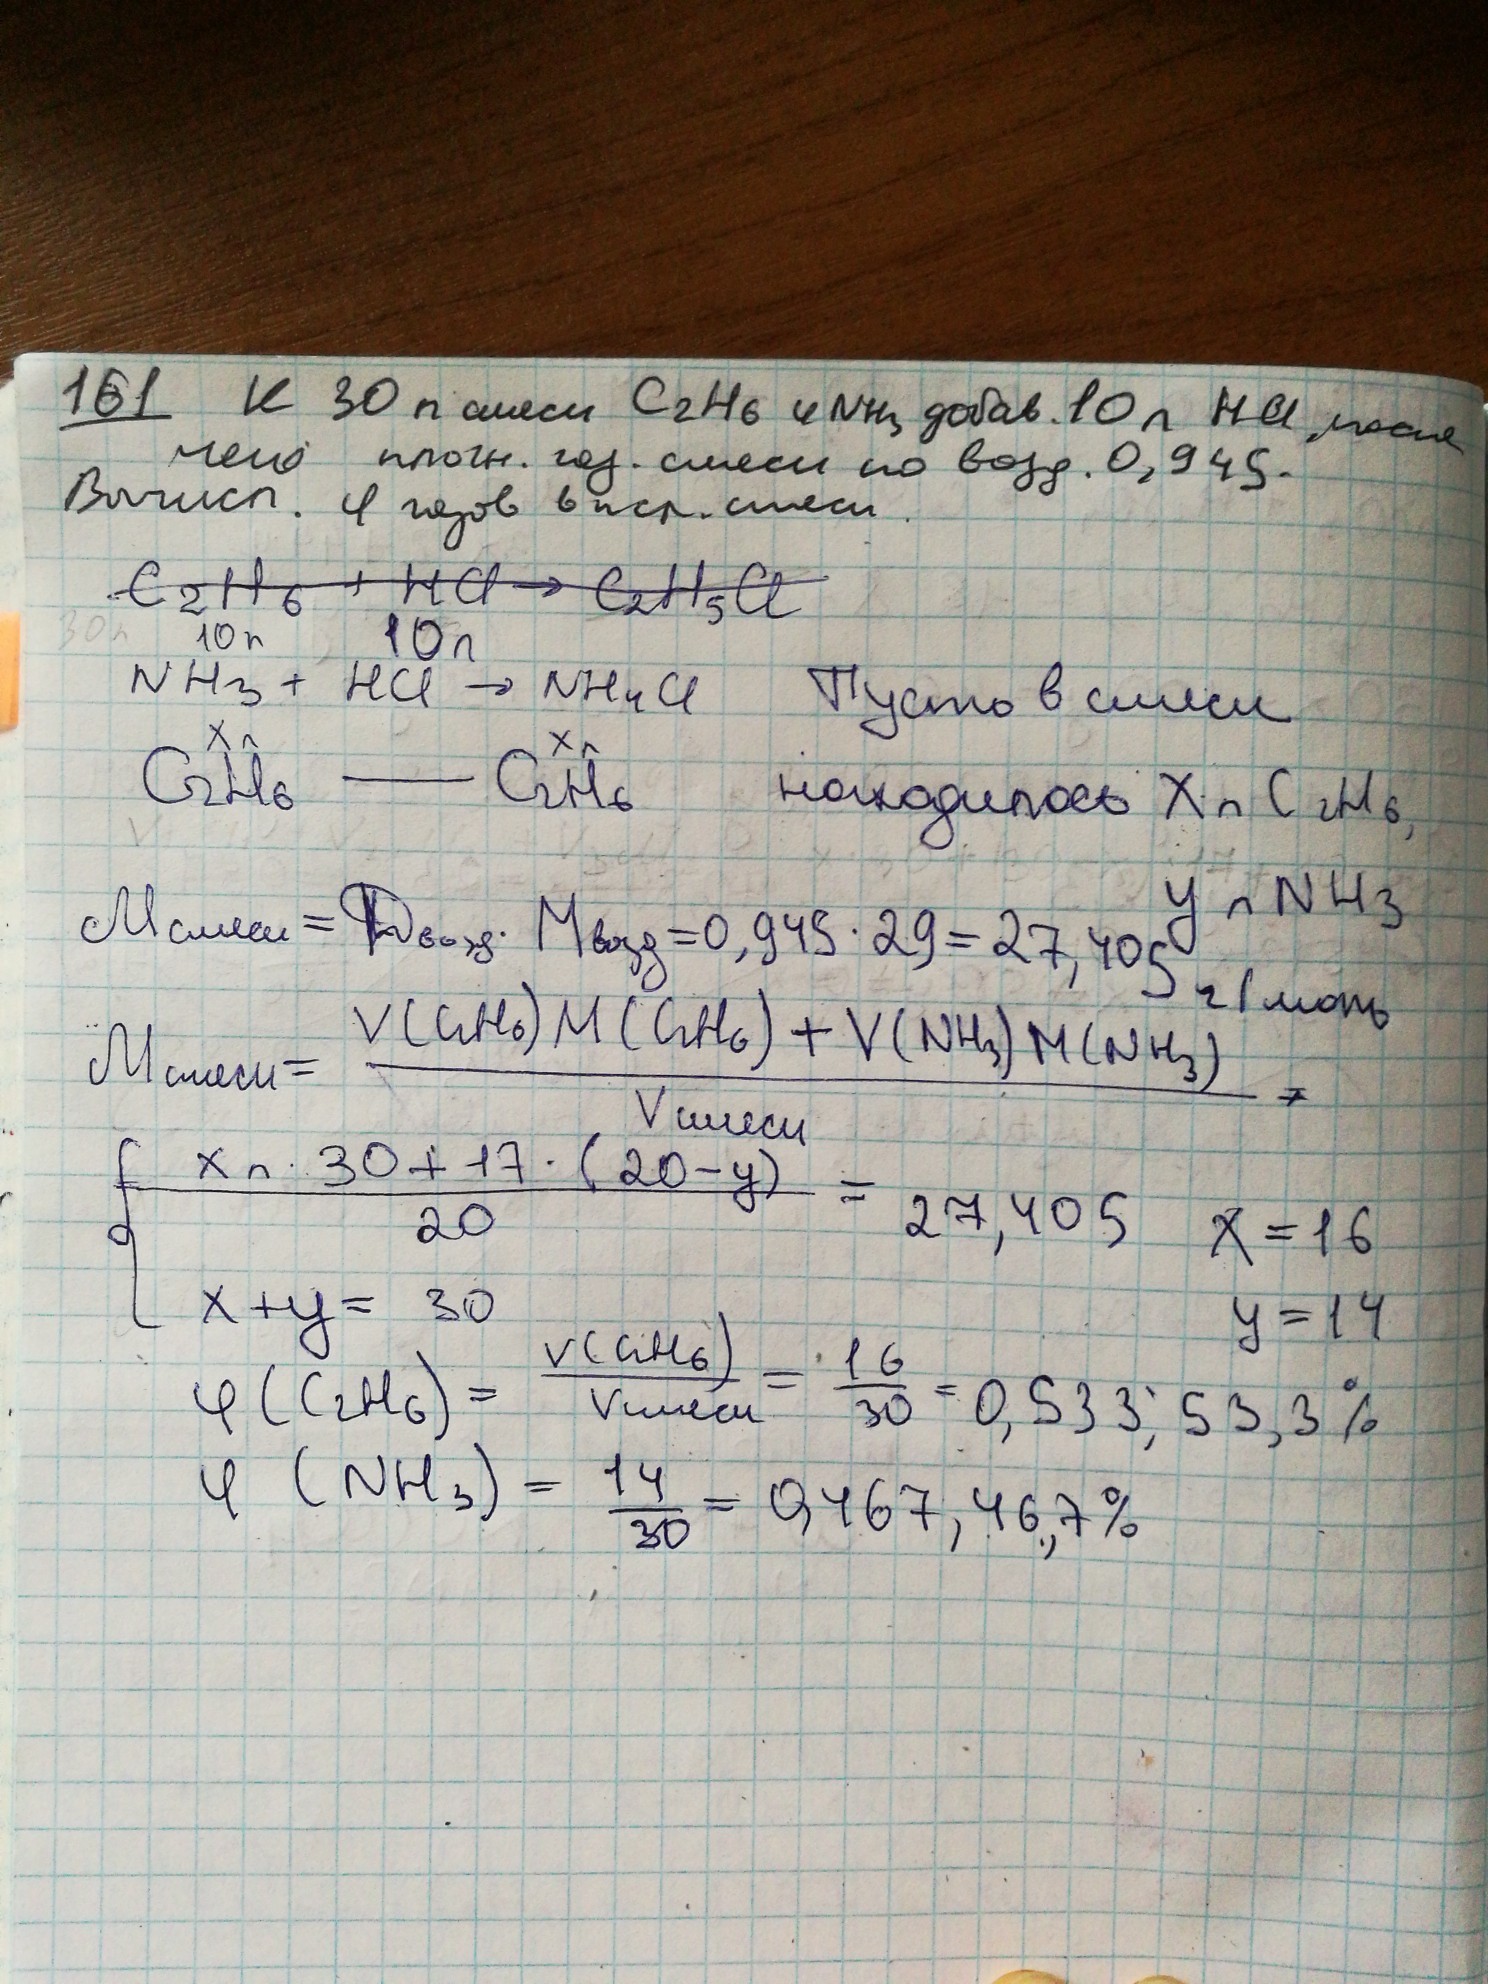 161 К 30 л смеси C2H6 и NH3 добав. 10 л HCl, после
чего плотн. газ. смеси по возд. 0,945.
Вычисл. φ газов в исх. смеси.
C2H6 + HCl → C2H5Cl
30л 10л 10л
NH3 + HCl → NH4Cl Пусть в смеси
xл xл
C2H6 — C2H6 находилось x л C2H6,
y л NH3
Mсмеси = Dвозд. · Mвозд = 0,945 · 29 = 27,405 г/моль
Mсмеси = V(C2H6) M(C2H6) + V(NH3) M(NH3) =
Vсмеси
xл · 30 + 17 · (20 - y) = 27,405 x = 16
20
x + y = 30 y = 14
φ(C2H6) = V(C2H6)/Vсмеси = 16/30 = 0,533; 53,3%
φ(NH3) = 14/30 = 0,467, 46,7%